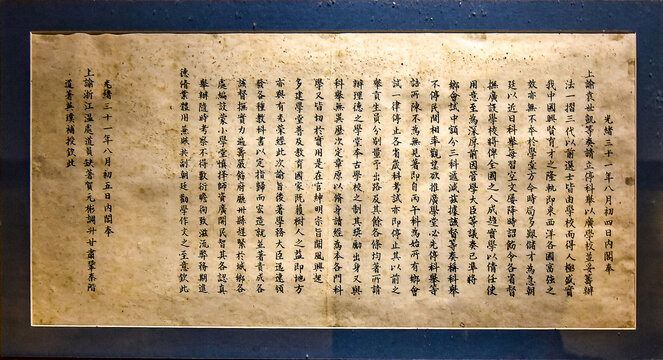 光緒三十一年八月初四日內閣奉
上諭袁世凱等奏請立停科舉以廣學校並妥籌辦
法一摺三代以前選士皆由學校而得人極盛實
我中國興賢育才之隆軌即東西洋各國富強之
效亦無不本於學堂方今時局多艱儲才為急朝
廷以近日科舉每習空文屢降明詔飭令各省督
撫廣設學校將俾全國之人咸趨實學以備任使
用意至為深厚前因管學大臣等議奏已準將
鄉會試中額分三科遞減茲據該督等奏稱科舉
不停民間相率觀望欲推廣學堂必先停科舉等
語所陳不為無見著即自丙午科為始所有鄉會
試一律停止各省歲科考試亦即停止其以前之
舉貢生員分別量予出路及其餘各條均著照所請
辦理總之學堂本古學校之制其獎勵出身又與
科舉無異歷次定章原以修身讀經為本各門科
學又皆切於實用是在官紳申明宗旨聞風興起
多建學堂普及教育國家既獲樹人之益即地方
亦與有光榮經此次諭旨後著學務大臣迅速頒
發各種教科書以定指歸而宏造就並著責成各
該督撫實力通籌嚴飭府廳州縣趕緊於城鄉各
處遍設蒙小學堂慎擇師資廣開民智其各認真
舉辦隨時考察不得敷衍瞻徇致滋流弊務期進
德修業體用兼賅共副朝廷勸學作育之至意欽此
光緒三十一年八月初五日內閣奉
上諭浙江溫處道員缺著賀元彬調升甘肅鞏秦階
道著英璞補授欽此